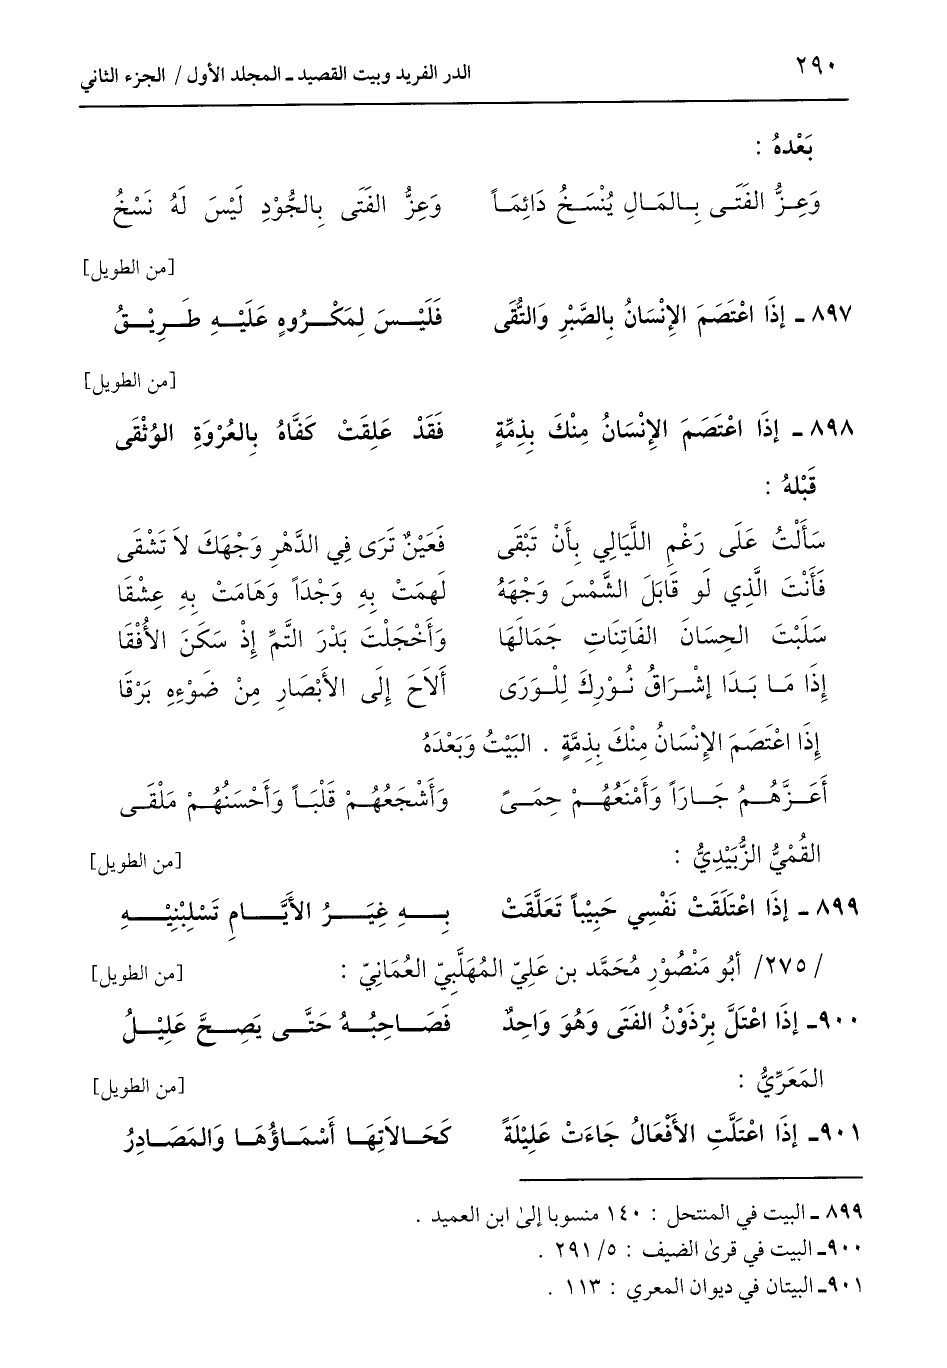 ٢٩٠ الدر الفريد وبيت القصيد ـ المجلد الأول / الجزء الثاني
بَعْدهُ :
وَعِـزُّ الفَتَـى بِـالمَـالِ يُنْسَـخُ دَائِمَـاً وَعِزُّ الفَتَى بِالجُوْدِ لَيْسَ لَهُ نَسْخُ
[من الطويل]
٨٩٧ ـ إِذَا اعْتَصَمَ الإِنْسَانُ بِالصَّبْرِ وَالتُّقَى فَلَيْـسَ لِمَكْـرُوهٍ عَلَيْـهِ طَـرِيْـقُ
[من الطويل]
٨٩٨ ـ إِذَا اعْتَصَمَ الإِنْسَانُ مِنْكَ بِذِمِّةٍ فَقَدْ عَلِقَتْ كَفَّاهُ بِالعُرْوَةِ الوُثْقَى
قَبْلهُ :
سَأَلْتُ عَلَى رَغْمِ اللَّيَالِي بِأَنْ تَبْقَى فَعَيْنٌ تَرَى فِي الدَّهْرِ وَجْهَكَ لاَ تَشْقَى
فَأَنْتَ الَّذِي لَو قَابَلَ الشَّمْسَ وَجْهَهُ لَهِمَتْ بِهِ وَجْدَاً وَهَامَتْ بِهِ عِشْقَا
سَلَبْتَ الحِسَانَ الفَاتِنَاتِ جَمَالَهَا وَأَخْجَلْتَ بَدْرَ التَّمِّ إِذْ سَكَنَ الأُفْقَا
إِذَا مَـا بَـدَا إِشْـرَاقُ نُـوْرِكَ لِلْـوَرَى أَلاَحَ إِلَى الأَبْصَارِ مِنْ ضَوْءِهِ بَرْقَا
إِذَا اعْتَصَمَ الإِنْسَانُ مِنْكَ بِذِمَّةٍ . البَيْتُ وَبَعْدَهُ
أَعَـزَّهُـمُ جَـارَاً وَأَمْنَعُهُـمْ حِمَـىً وَأَشْجَعُهُـمْ قَلْبَـاً وَأَحْسَنُهُـمْ مَلْقَـى
القُمْيُّ الزُّبَيْدِيُّ : [من الطويل]
٨٩٩ ـ إِذَا اعْتَلَقَتْ نَفْسِي حَبِيْبَاً تَعَلَّقَتْ بِـهِ غِيَـرُ الأَيَّـامِ تَسْلِبْنِيْـهِ
/ ٢٧٥/ أَبُو مَنْصُوْرٍ مُحَمَّد بن عَلِيّ المُهَلَّبِيّ العُمَانِيّ : [من الطويل]
٩٠٠ـ إِذَا اعْتَلَّ بِرْذَوْنُ الفَتَى وَهُوَ وَاحِدٌ فَصَـاحِبُـهُ حَتَّـى يَصِـحَّ عَلِيْـلُ
المَعَرِّيُّ : [من الطويل]
٩٠١ـ إِذَا اعْتَلَّتِ الأَفْعَالُ جَاءَتْ عَلِيْلَةً كَحَـالاَتِهَـا أَسْمَـاؤُهَـا وَالمَصَـادِرُ
٨٩٩ ـ البيت في المنتحل : ١٤٠ منسوبا إلى ابن العميد .
٩٠٠ـ البيت في قرى الضيف : ٥/ ٢٩١ .
٩٠١ـ البيتان في ديوان المعري : ١١٣ .